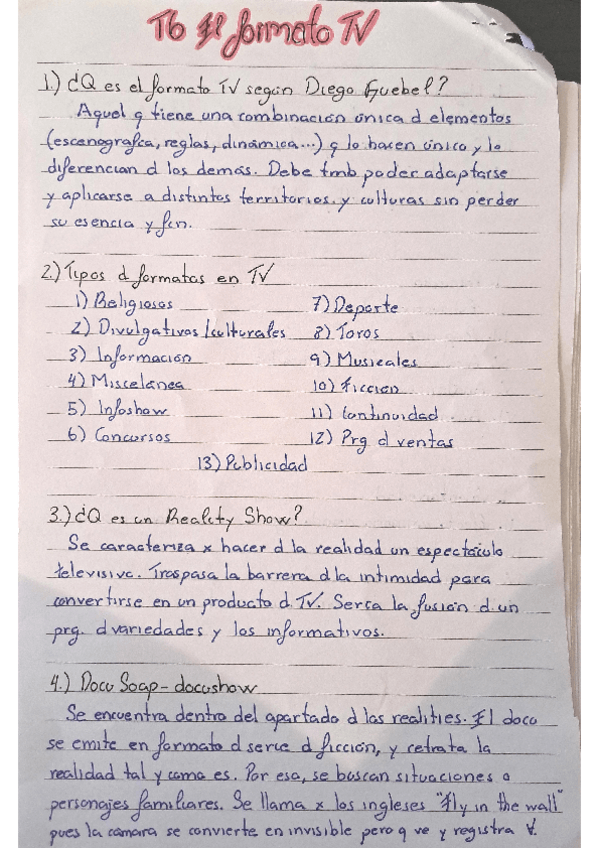 T6 El formato TV
1.) ¿Q es el formato TV según Diego Guebel?
Aquel q tiene una combinación única d elementos
(escenografía, reglas, dinámica...) q lo hacen único y lo
diferencian d los demás. Debe tmb poder adaptarse
y aplicarse a distintos territorios y culturas sin perder
su esencia y fin.
2.) Tipos d formatos en TV
1) Religiosos
2) Divulgativos/culturales
3) Información
4) Miscelánea
5) Infoshow
6) Concursos
7) Deporte
8) Toros
9) Musicales
10) Ficción
11) Continuidad
12) Prg d ventas
13) Publicidad
3.) ¿Q es un Reality Show?
Se caracteriza x hacer d la realidad un espectáculo
televisivo. Traspasa la barrera d la intimidad para
convertirse en un producto d TV. Sería la fusión d un
prg. d variedades y los informativos.
4.) Docu Soap - docushow
Se encuentra dentro del apartado d los realities. El docu
se emite en formato d serie d ficción, y retrata la
realidad tal y como es. Por eso, se buscan situaciones o
personajes familiares. Se llama x los ingleses "fly in the wall"
pues la cámara se convierte en invisible pero q ve y registra ∀.